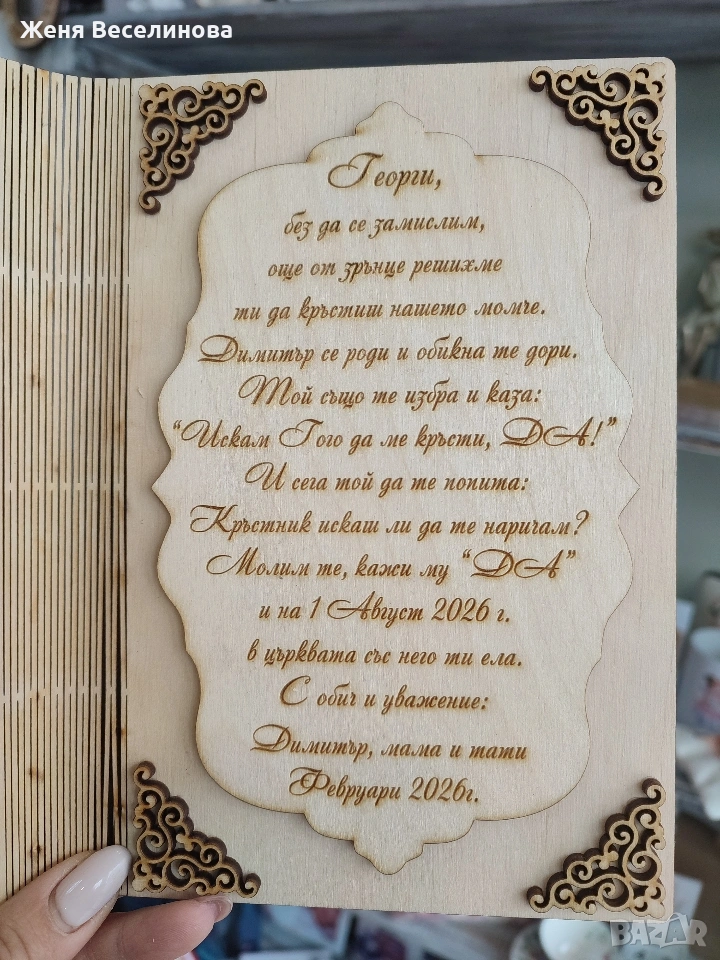 Женя Веселинова
Георги,
без да се замислим,
още от зрънце решихме
ти да кръстиш нашето момче.
Димитър се роди и обикна те дори.
Той също те избра и каза:
“Искам Гого да ме кръсти, ДА!”
И сега той да те попита:
Кръстник искаш ли да те наричам?
Молим те, кажи му “ДА”
и на 1 Август 2026 г.
в църквата със него ти ела.
С обич и уважение:
Димитър, мама и тати
Февруари 2026г.
BAZAR